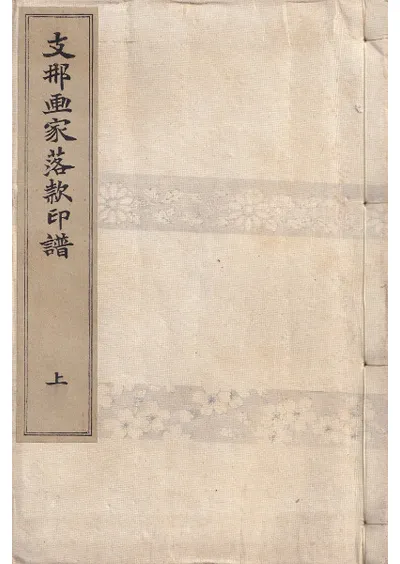 支那画家落款印譜
上